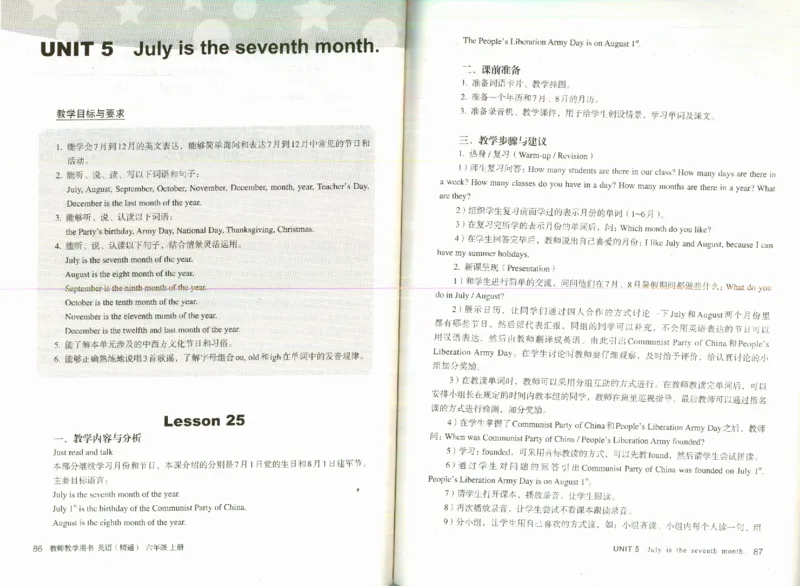 UNIT 5 July is the seventh month.
教学目标与要求
1. 能学会7月到12月的英文表达，能够简单询问和表达7月到12月中常见的节日和
活动。
2. 能听、说、读、写以下词语和句子：
July, August, September, October, November, December, month, year, Teacher's Day.
December is the last month of the year.
3. 能够听、说、认读以下词语：
the Party's birthday, Army Day, National Day, Thanksgiving, Christmas.
4. 能听、说、认读以下句子，结合情景灵活运用。
July is the seventh month of the year.
August is the eight month of the year.
September is the ninth month of the year.
October is the tenth month of the year.
November is the eleventh month of the year.
December is the twelfth and last month of the year.
5. 能了解本单元涉及的中西方文化节日和习俗。
6. 能够正确熟练地说唱3首歌谣，了解字母组合ou, old和igh在单词中的发音规律。
Lesson 25
一、教学内容与分析
Just read and talk
本部分继续学习月份和节日，本课介绍的分别是7月1日党的生日和8月1日建军节。
主要目标语言：
July is the seventh month of the year.
July 1st is the birthday of the Communist Party of China.
August is the eighth month of the year.
86 教师教学用书 英语（精通） 六年级 上册
The People's Liberation Army Day is on August 1st.
二、课前准备
1. 准备词语卡片、教学挂图。
2. 准备一个年历和7月、8月的月历。
3. 准备录音机、教学课件，用于给学生创设情景，学习单词及课文。
三、教学步骤与建议
1. 热身 / 复习（Warm-up / Revision）
1）师生复习问答：How many students are there in our class? How many days are there in
a week? How many classes do you have in a day? How many months are there in a year? What
are they?
2）组织学生复习前面学过的表示月份的单词（1~6月）。
3）在复习完所学的表示月份的单词后，问：Which month do you like?
4）在学生回答完毕后，教师说出自己喜爱的月份：I like July and August, because I can
have my summer holidays.
2. 新课呈现（Presentation）
1）和学生进行简单的交流，问问他们在7月、8月暑假期间都做些什么：What do you
do in July / August?
2）展示日历，让同学们通过四人合作的方式讨论一下July 和 August 两个月份里
都有哪些节日，然后部代表汇报，同组的同学可以补充，不会用英语表达的节日可以
用汉语表达，然后由教师翻译成英语。由此引出Communist Party of China 和People's
Liberation Army Day。在学生讨论时教师要仔细观察，及时给予评价，给认真讨论的小
组加分奖励。
3）在教读单词时，教师可以采用分组互助的方式进行。在教师教读完单词后，可以
安排小组长在规定的时间内教本组的同学，教师在班里巡视指导。最后教师可以通过指名
读的方式进行检测，加分奖励。
4）在学生掌握了Communist Party of China 和People's Liberation Army Day之后，教师
问：When was Communist Party of China / People's Liberation Army founded?
5）学习：founded，可采用音标教读的方式，可以先教found，然后请学生尝试拼读。
6）通过学生对问题的回答引出Communist Party of China was founded on July 1st.
People's Liberation Army Day is on August 1st.
7）请学生打开课本，播放录音，让学生跟读。
8）再次播放录音，让学生尝试不看课本跟读录音。
9）分小组，让学生用自己喜欢的方式读，如：小组齐读、小组内每个人读一句，组
UNIT 5 July is the seventh month. 87